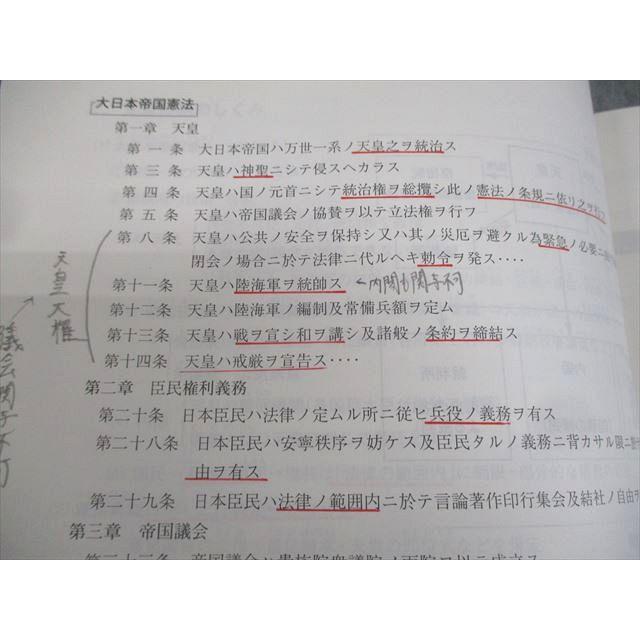 大日本帝国憲法
第一章 天皇
第一条 大日本帝国ハ万世一系ノ天皇之ヲ統治ス
第三条 天皇ハ神聖ニシテ侵スヘカラス
第四条 天皇ハ国ノ元首ニシテ統治権ヲ総攬シ此ノ憲法ノ条規ニ依リ之ヲ行フ
第五条 天皇ハ帝国議会ノ協賛ヲ以テ立法権ヲ行フ
第八条 天皇ハ公共ノ安全ヲ保持シ又ハ其ノ災厄ヲ避クル為緊急ノ必要ニ
閉会ノ場合ニ於テ法律ニ代ルヘキ勅令ヲ発ス‥‥
第十一条 天皇ハ陸海軍ヲ統帥ス ←内閣も関与不可
第十二条 天皇ハ陸海軍ノ編制及常備兵額ヲ定ム
第十三条 天皇ハ戦ヲ宣シ和ヲ講シ及諸般ノ条約ヲ締結ス
第十四条 天皇ハ戒厳ヲ宣告ス‥‥
天皇大権
議会関与不可
第二章 臣民権利義務
第二十条 日本臣民ハ法律ノ定ムル所ニ従ヒ兵役ノ義務ヲ有ス
第二十八条 日本臣民ハ安寧秩序ヲ妨ケス及臣民タルノ義務ニ背カサル限ニ
由ヲ有ス
第二十九条 日本臣民ハ法律ノ範囲内ニ於テ言論著作印行集会及結社ノ自由ヲ
第三章 帝国議会
第三十三条 帝国議会ハ貴族院衆議院ノ両院ヲ以テ成立ス